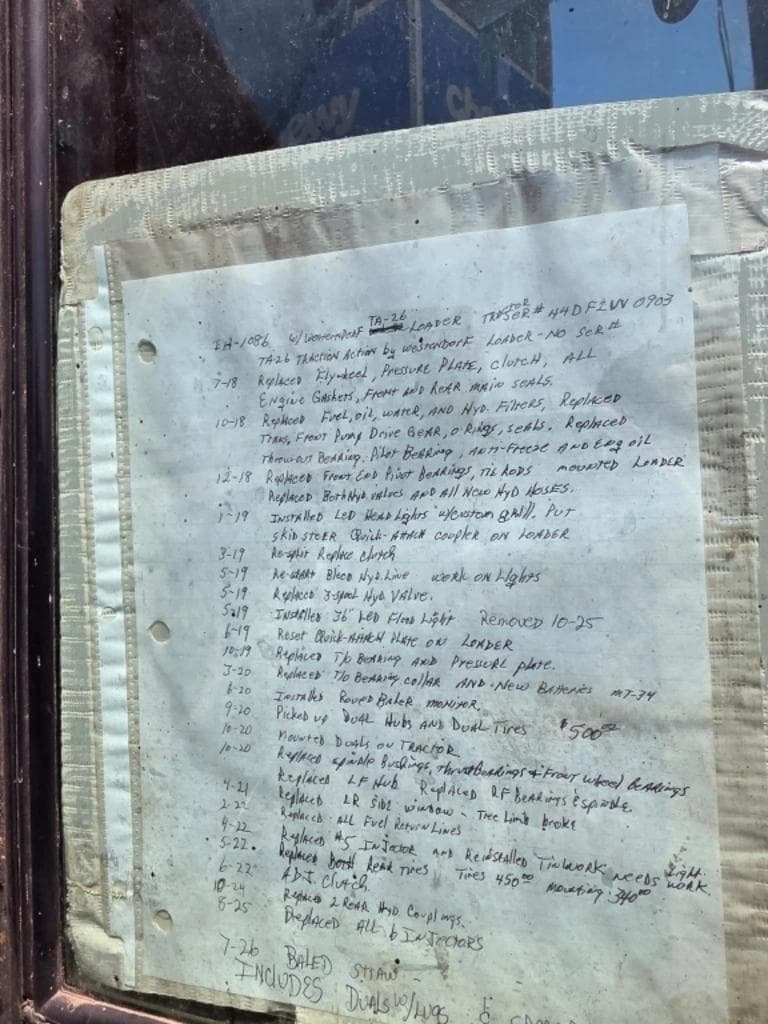 IH-1086 w/ Westendorf TA-26 Loader Tractor Ser# 44DF2VV 0903
TA26 Traction Action by Westendorf Loader - No Ser#
7-18 Replaced Flywheel, Pressure Plate, Clutch, All
Engine Gaskets, Front and Rear main seals.
10-18 Replaced Fuel, oil, water, and Hyd. Filters, Replaced
Trans, Front Pump Drive Gear, o-Rings, seals. Replaced
Throw-out Bearing, Pilot Bearing, Anti-Freeze and Eng oil
12-18 Replaced Front End Pivot Bearings, Tie Rods mounted Loader
Replaced Both Hyd. valves and All New Hyd Hoses.
1-19 Installed LED Head Lights w/custom Grill. Put
skid steer Quick-Attach coupler on Loader
3-19 Re-split Replace clutch
5-19 Bleed Hyd. Line work on Lights
5-19 Replaced 3-spool Hyd. Valve.
5-19 Installed 36" LED Flood Light Removed 10-25
6-19 Reset Quick-Attach Plate on Loader
10-19 Replaced T/o Bearing and Pressure plate.
3-20 Replaced T/o Bearing, collar and New Batteries MT-34
6-20 Installed Round Baler monitor.
9-20 Picked up Dual Hubs and Dual Tires $500⁰⁰
10-20 Mounted Duals on Tractor
10-20 Replaced spindle Bushings, Thrust Bearings & Front wheel Bearings
Replaced LF Hub Replaced RF Bearings & spindle
4-21 Replaced LR side window - Tree Limb broke
2-22 Replaced All Fuel Return Lines
4-22 Replaced #5 Injector and Reinstalled Tinwork Needs Light work
5-22 Replaced both Rear Tires Tires 450⁰⁰ mounting 340⁰⁰
6-22 ADJ. Clutch
10-24 Replaced 2 Rear Hyd. Couplings.
8-25 Replaced All 6 Injectors
7-26 BALED STRAW -
INCLUDES DUALS w/LUGS